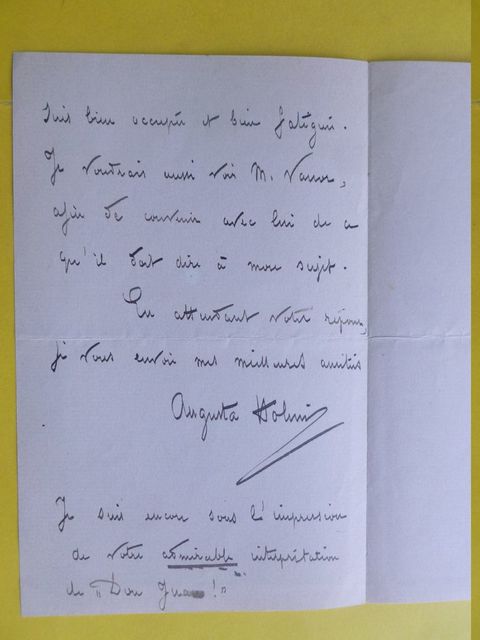 suis bien occupée et bien fatiguée.
Je voudrais aussi voir M. Vanor,
afin de convenir avec lui de ce
qu'il doit dire à mon sujet.
En attendant votre réponse,
je vous envoie mes meilleures amitiés
Augusta Holmès
Je suis encore sous l'impression
de votre admirable interprétation
de "Don Juan!"